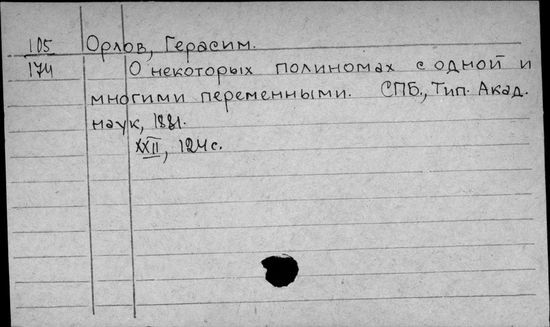 105 Орлов, Герасим.
174 О некоторых полиномах с одной и
многими переменными. СПБ., Тип. Акад.
наук, 1881.
XXII, 124 с.